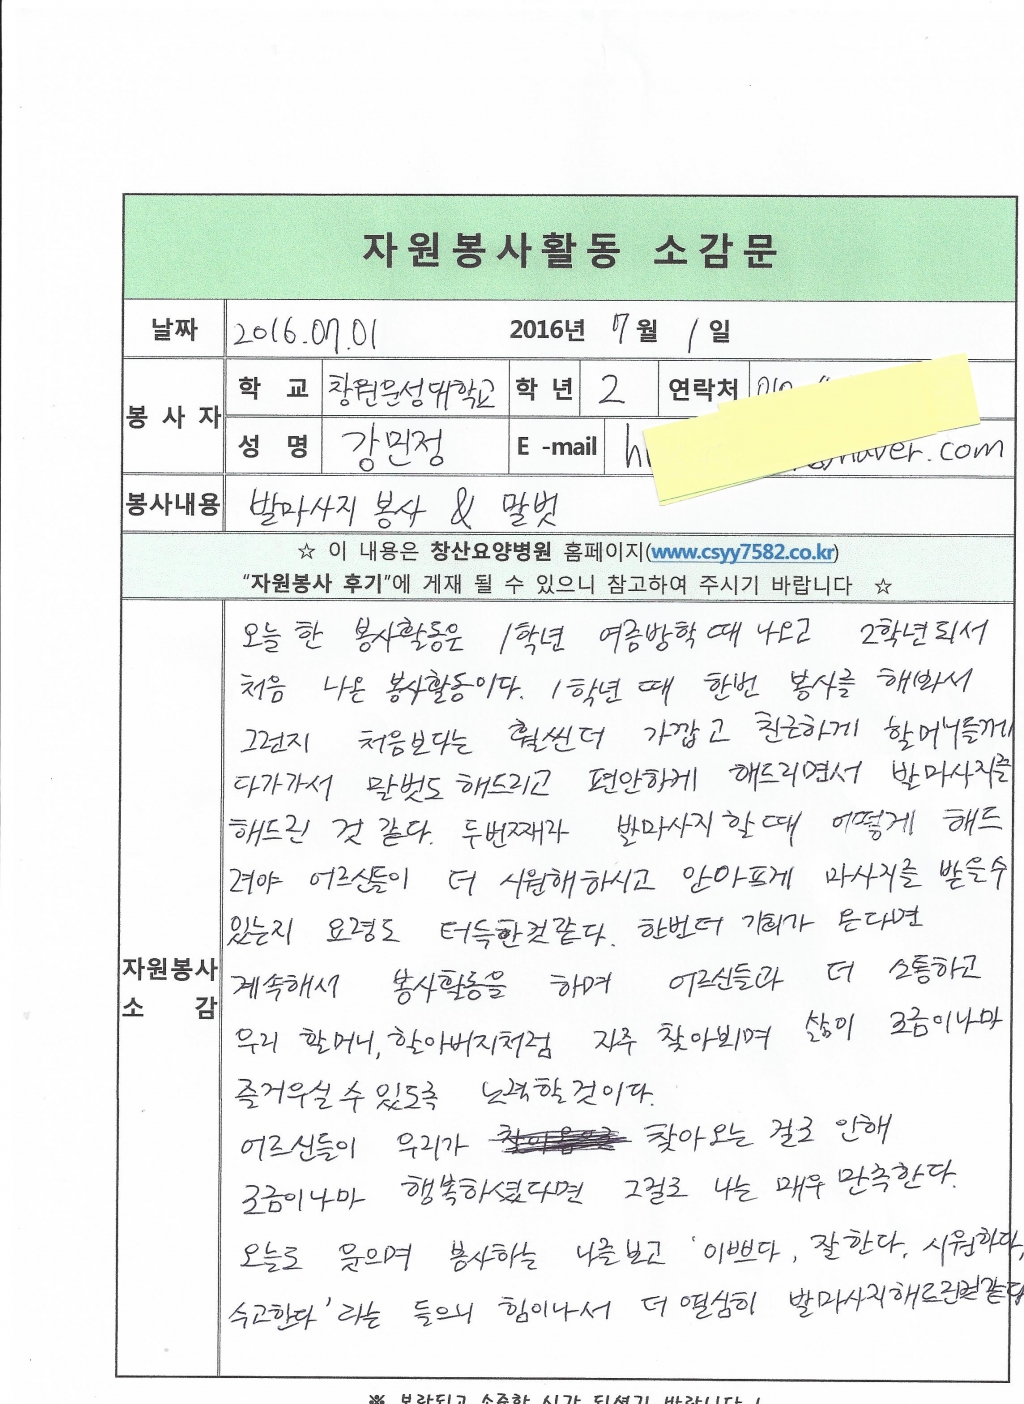 자원봉사활동 소감문
날짜 2016.07.01 2016년 7월 1일
봉사자 학 교 창원문성대학교 학년 2 연락처 010
성 명 강민정 E-mail naver.com
봉사내용 발마사지 봉사 & 말벗
☆ 이 내용은 창산요양병원 홈페이지(www.csyy7582.co.kr)
"자원봉사 후기"에 게재 될 수 있으니 참고하여 주시기 바랍니다 ☆
자원봉사 소 감
오늘 한 봉사활동은 1학년 여름방학 때 나오고 2학년되서
처음 나온 봉사활동이다. 1학년 때 한번 봉사를 해봐서
그런지 처음보다는 훨씬더 가깝고 친근하게 할머니들께
다가가서 말벗도 해드리고 편안하게 해드리면서 발마사지를
해드린 것 같다. 두번째라 발마사지 할 때 어떻게 해드
려야 어르신들이 더 시원해하시고 안아프게 마사지를 받을수
있는지 요령도 터득한것같다. 한번더 기회가 온다면
계속해서 봉사활동을 하며 어르신들과 더 소통하고
우리 할머니, 할아버지처럼 자주 찾아뵈며 삶이 조금이나마
즐거우실 수 있도록 노력할것이다.
어르신들이 우리가 찾아오는 걸로 인해
조금이나마 행복하셨다면 그걸로 나는 매우 만족한다.
오늘도 웃으며 봉사하는 나를보고 '이쁘다, 잘한다, 시원하다,
수고한다' 라는 들으니 힘이나서 더 열심히 발마사지해드린것같다
※ 보람되고 소중한 시간 되셨기 바랍니다 !